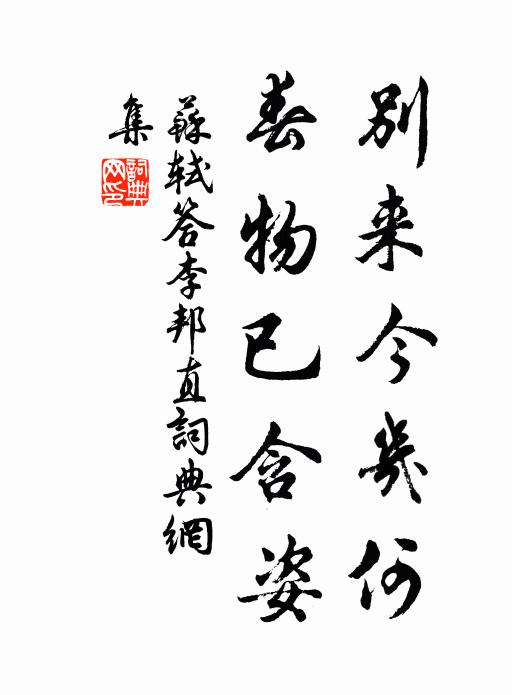 別来今幾何
春物已含姿
蘇軾答李邦直詞典網
集
詞典网印